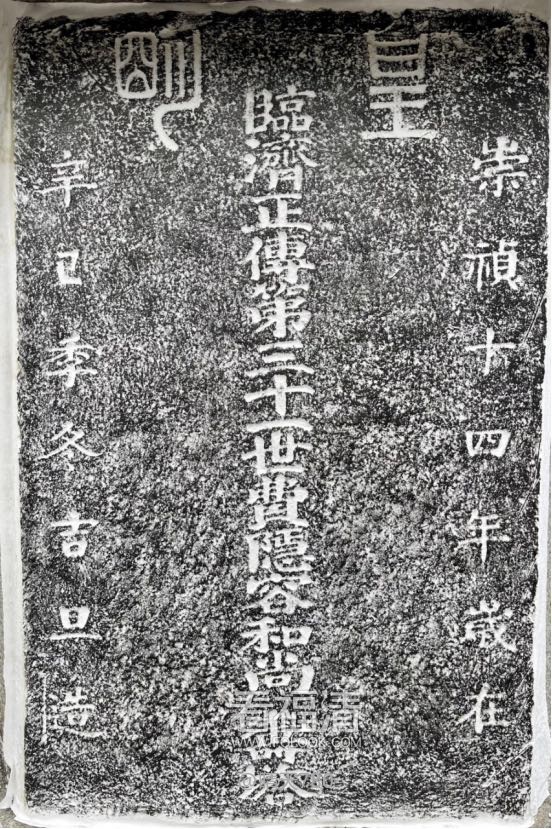 皇明
崇禎十四年歲在
臨濟正傳第三十一世費隱容和尚壽塔
辛巳季冬吉旦造
看福清